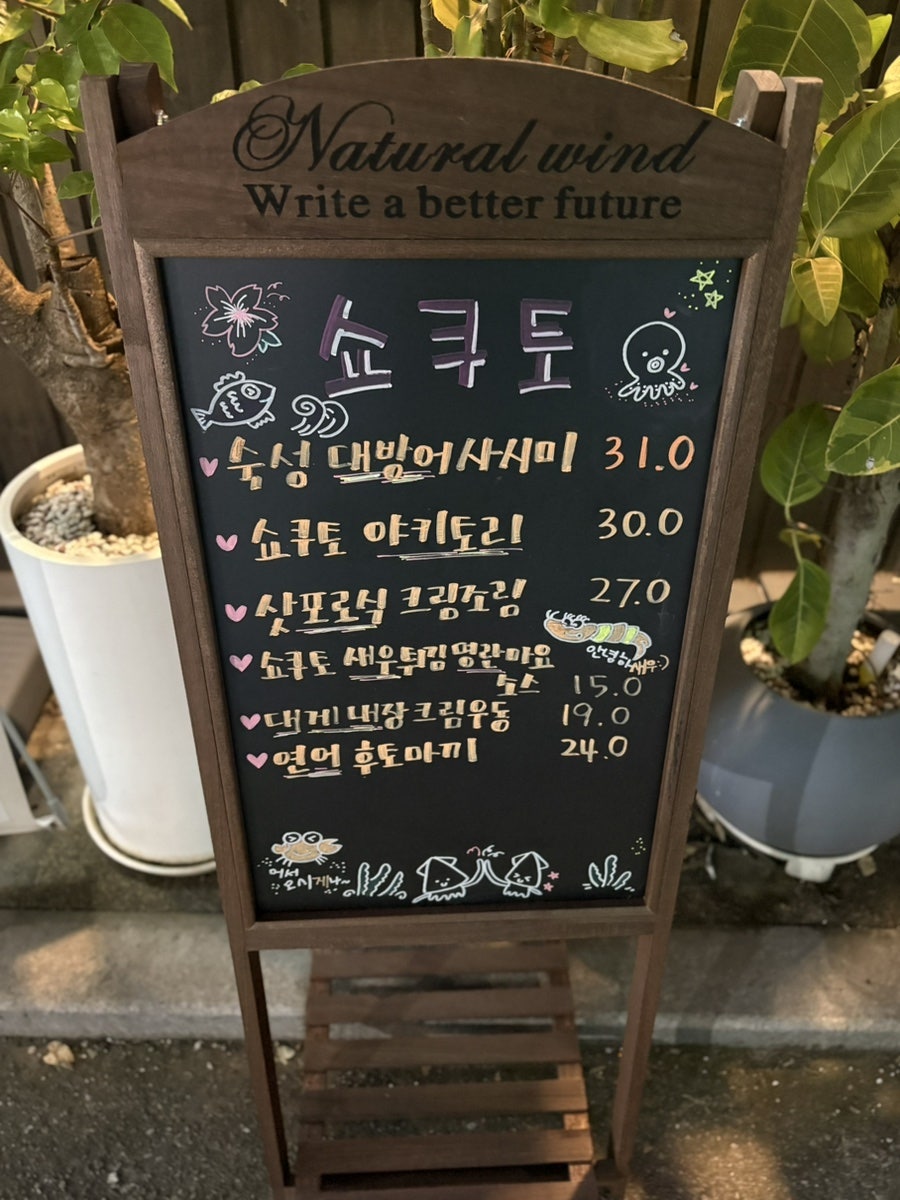 Natural wind
Write a better future
쇼쿠토
숙성 대방어사시미 31.0
쇼쿠토 야키토리 30.0
삿포로식 크림조림 27.0
안녕하새우:)
쇼쿠토 새우튀김명란마요
토스 15.0
대게 내장크림우동 19.0
연어 후토마끼 24.0
어서
오시게나~